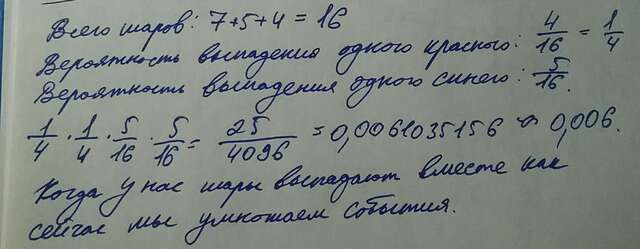 Всего шаров: 7+5+4=16
Вероятность выпадения одного красного: 4/16 = 1/4
Вероятность выпадения одного синего: 5/16.
1/4 · 1/4 · 5/16 · 5/16 = 25/4096 = 0,0061035156 ∽ 0,006.
Когда у нас шары выпадают вместе как
сейчас мы умножаем события.